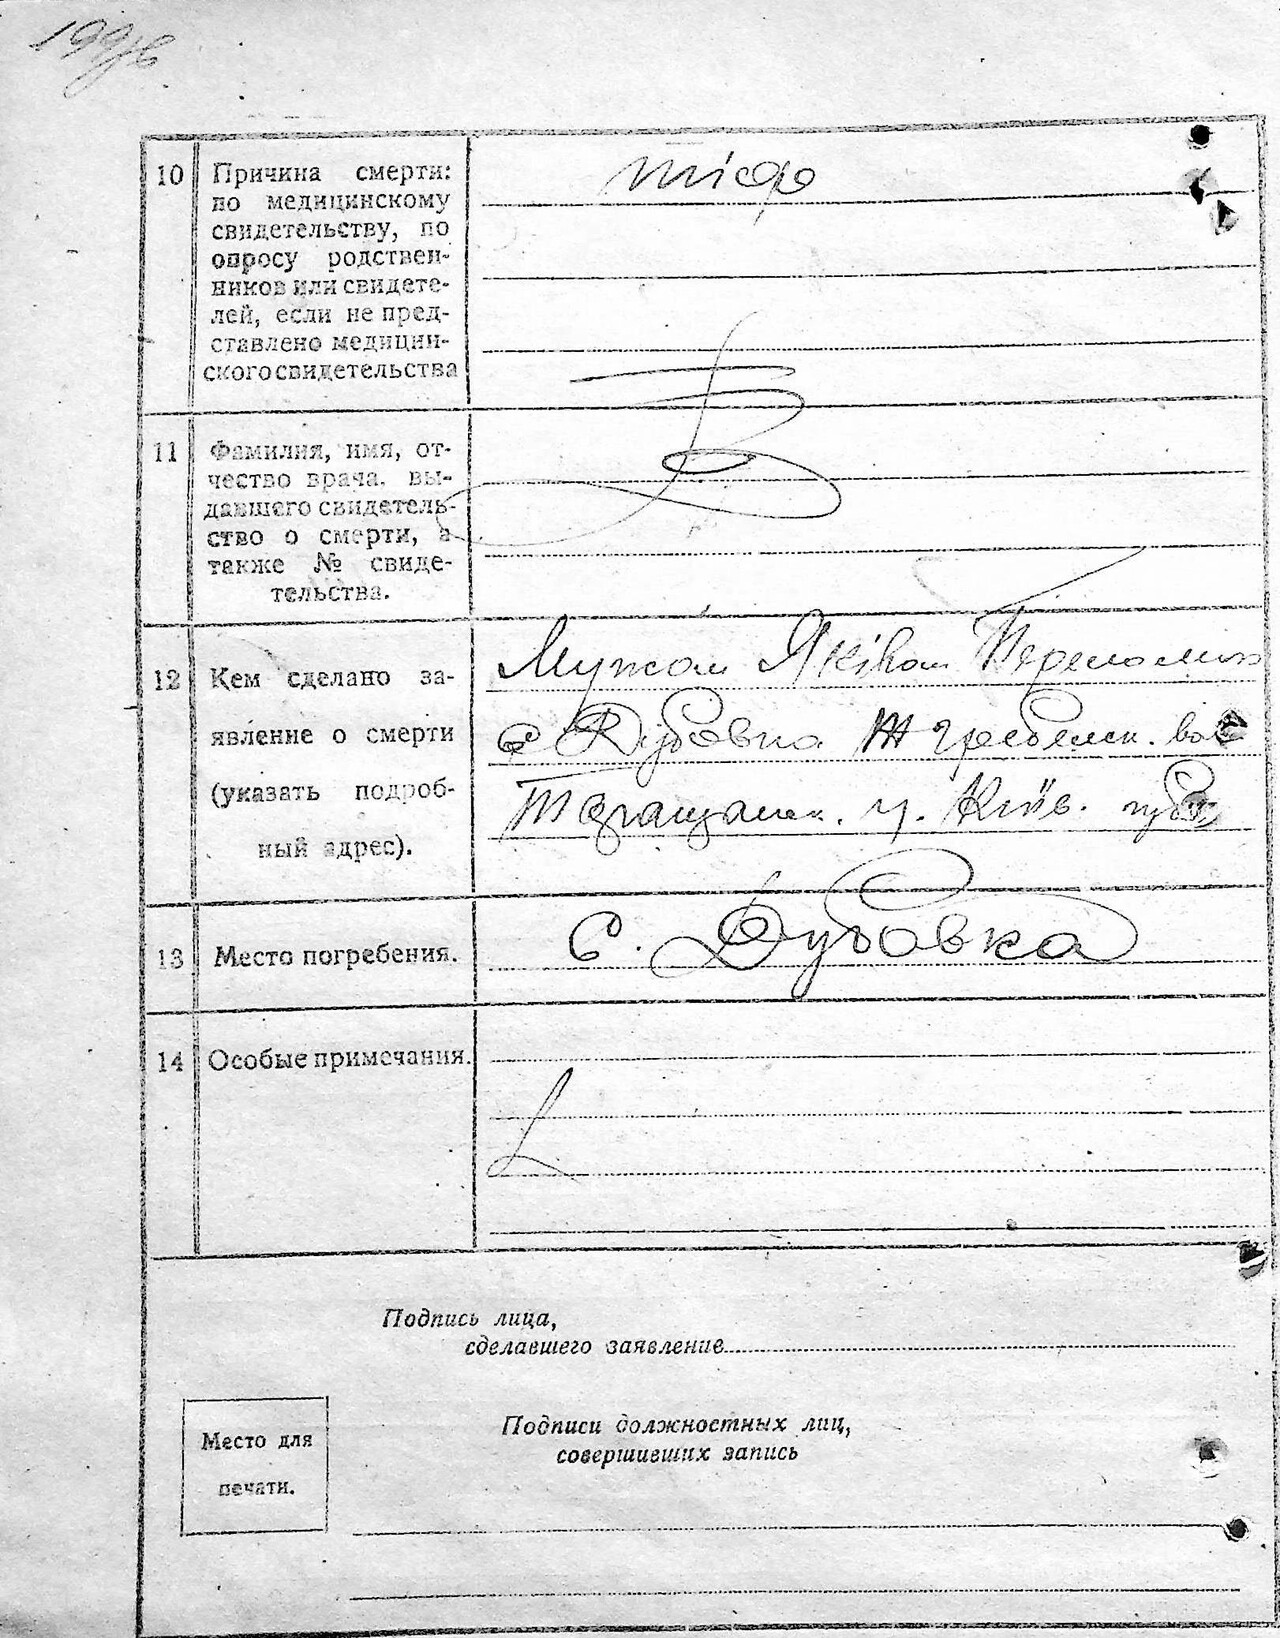 10 Причина смерти: тіф
по медицинскому
свидетельству, по
опросу родствен-
ников или свидете-
лей, если не пред-
ставлено медицин-
ского свидетельства
11 Фамилия, имя, от-
чество врача, вы-
давшего свидетель-
ство о смерти, а
также № свиде-
тельства.
12 Кем сделано за- Мужом Яківом
явление о смерти с Дубовка
(указать подроб- Таращанск. у. Київ. губ
ный адрес).
13 Место погребения. С. Дубовка
14 Особые примечания.
Подпись лица,
сделавшего заявление
Место для
печати.
Подписи должностных лиц,
совершивших запись